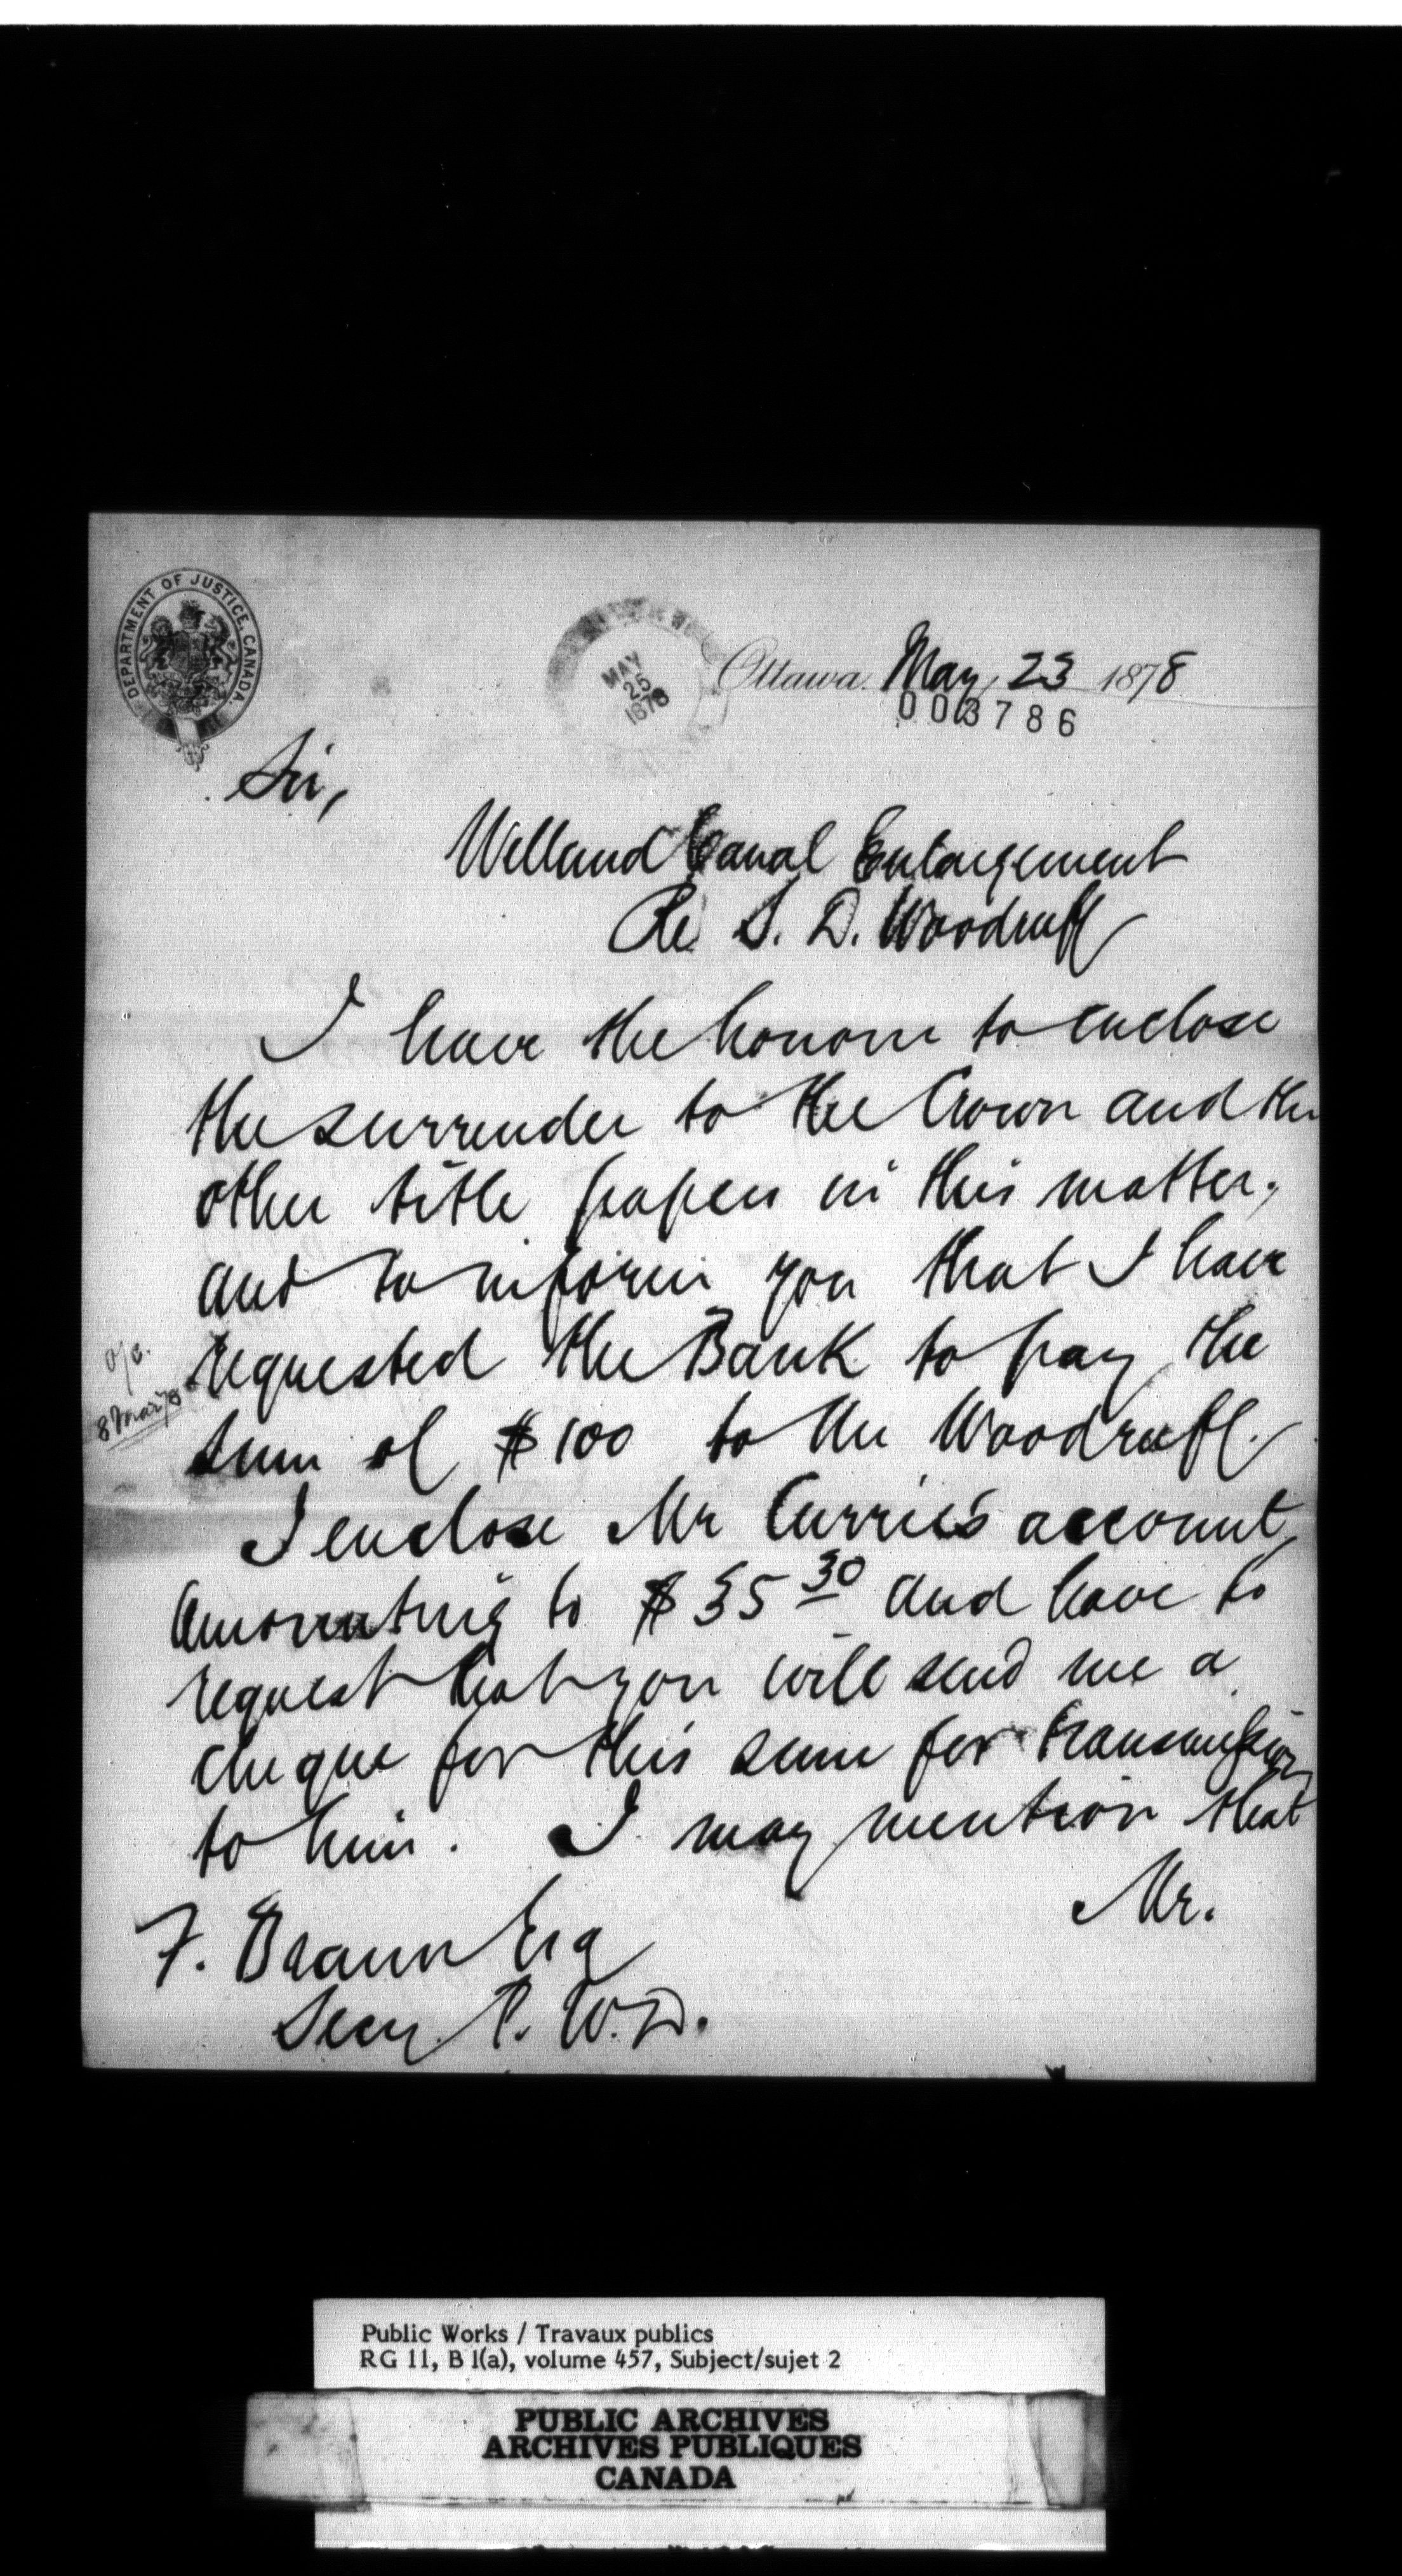 DEPARTMENT OF JUSTICE, CANADA.
MAY
25
1878
Ottawa May 23 1878
003786
Sir,
Welland Canal Enlargement
Re S. D. Woodruff
I have the honour to enclose
the surrender to the Crown and the
other title papers in this matter,
and to inform you that I have
requested the Bank to pay the
sum of $100 to Mr Woodruff.
I enclose Mr Currie's account,
amounting to $35 30 and have to
request that you will send me a
cheque for this sum for transmission
to him. I may mention that
Mr.
F. Braun Esq
Secy P. W. D.
Public Works / Travaux publics
RG 11, B 1(a), volume 457, Subject/sujet 2
PUBLIC ARCHIVES
ARCHIVES PUBLIQUES
CANADA